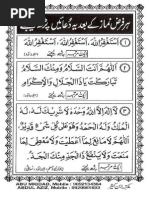 ہر فرض نماز کے بعد یہ دعائیں پڑھ لیجئے
۱ أَسْتَغْفِرُ اللهَ، أَسْتَغْفِرُ اللهَ، أَسْتَغْفِرُ اللهَ
۲ اَللّٰهُمَّ أَنْتَ السَّلَامُ وَمِنْكَ السَّلَامُ
تَبَارَكْتَ يَا ذَا الْجَلَالِ وَالْإِكْرَامِ
۳ لَا إِلٰهَ إِلَّا اللهُ وَحْدَهُ لَا شَرِيكَ لَهُ
لَهُ الْمُلْكُ وَلَهُ الْحَمْدُ وَهُوَ عَلَىٰ كُلِّ
شَيْءٍ قَدِيرٌ اَللّٰهُمَّ لَا مَانِعَ لِمَا أَعْطَيْتَ
وَلَا مُعْطِيَ لِمَا مَنَعْتَ وَلَا يَنْفَعُ
ذَا الْجَدِّ مِنْكَ الْجَدُّ
ABU MIQDAD, Mobile :
ABDUL AZIZ, Mobile :